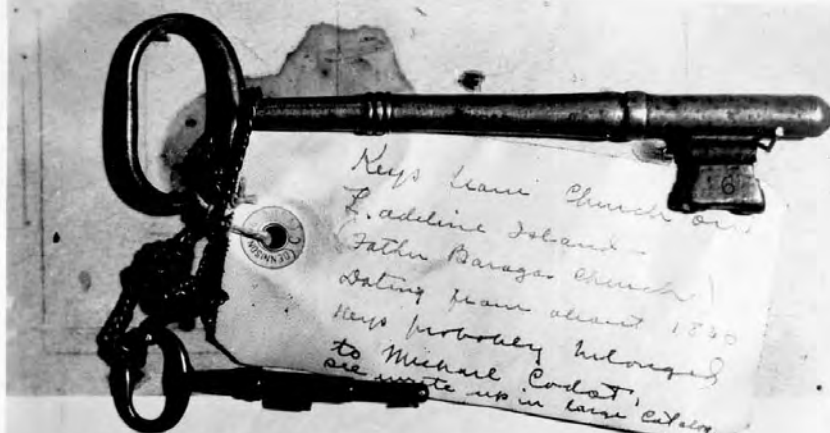 Keys from Church on
L. adeline Island
Father Baragas Church)
Dating from about 1836
Keys probably belonged
to Michael Cadot,
see write up in large Catalog
DENNISON
6